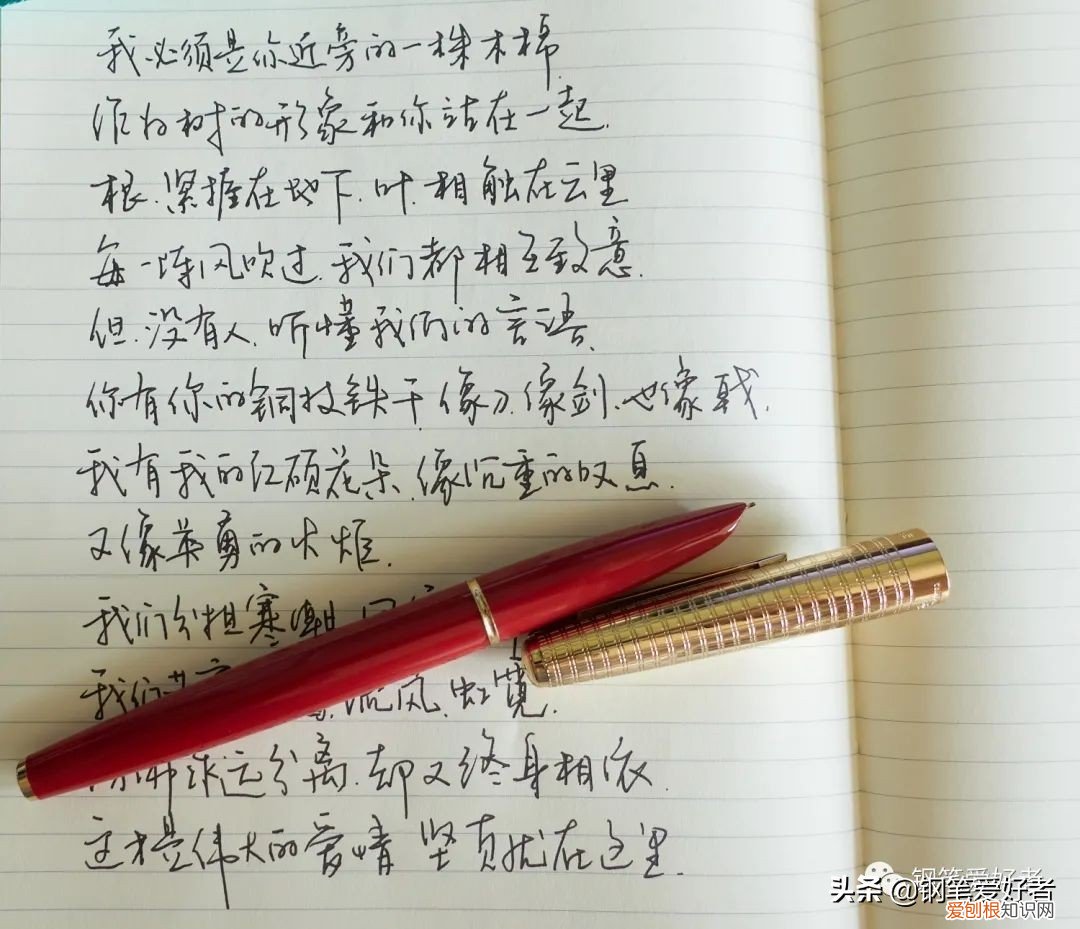 我必须是你近旁的一株木棉
作为树的形象和你站在一起.
根.紧握在地下.叶.相触在云里
每一阵风吹过.我们都相互致意.
但.没有人.听懂我们的言语.
你有你的铜枝铁干.像刀.像剑.也像戟.
我有我的红硕花朵.像沉重的叹息.
又像英勇的火炬.
我们分担寒潮.
我们共流风.虹霓.
永远分离.却又终身相依.
这才是伟大的爱情 坚贞就在这里.
钢笔爱好者
头条@钢笔爱好者
爱刨根知识网